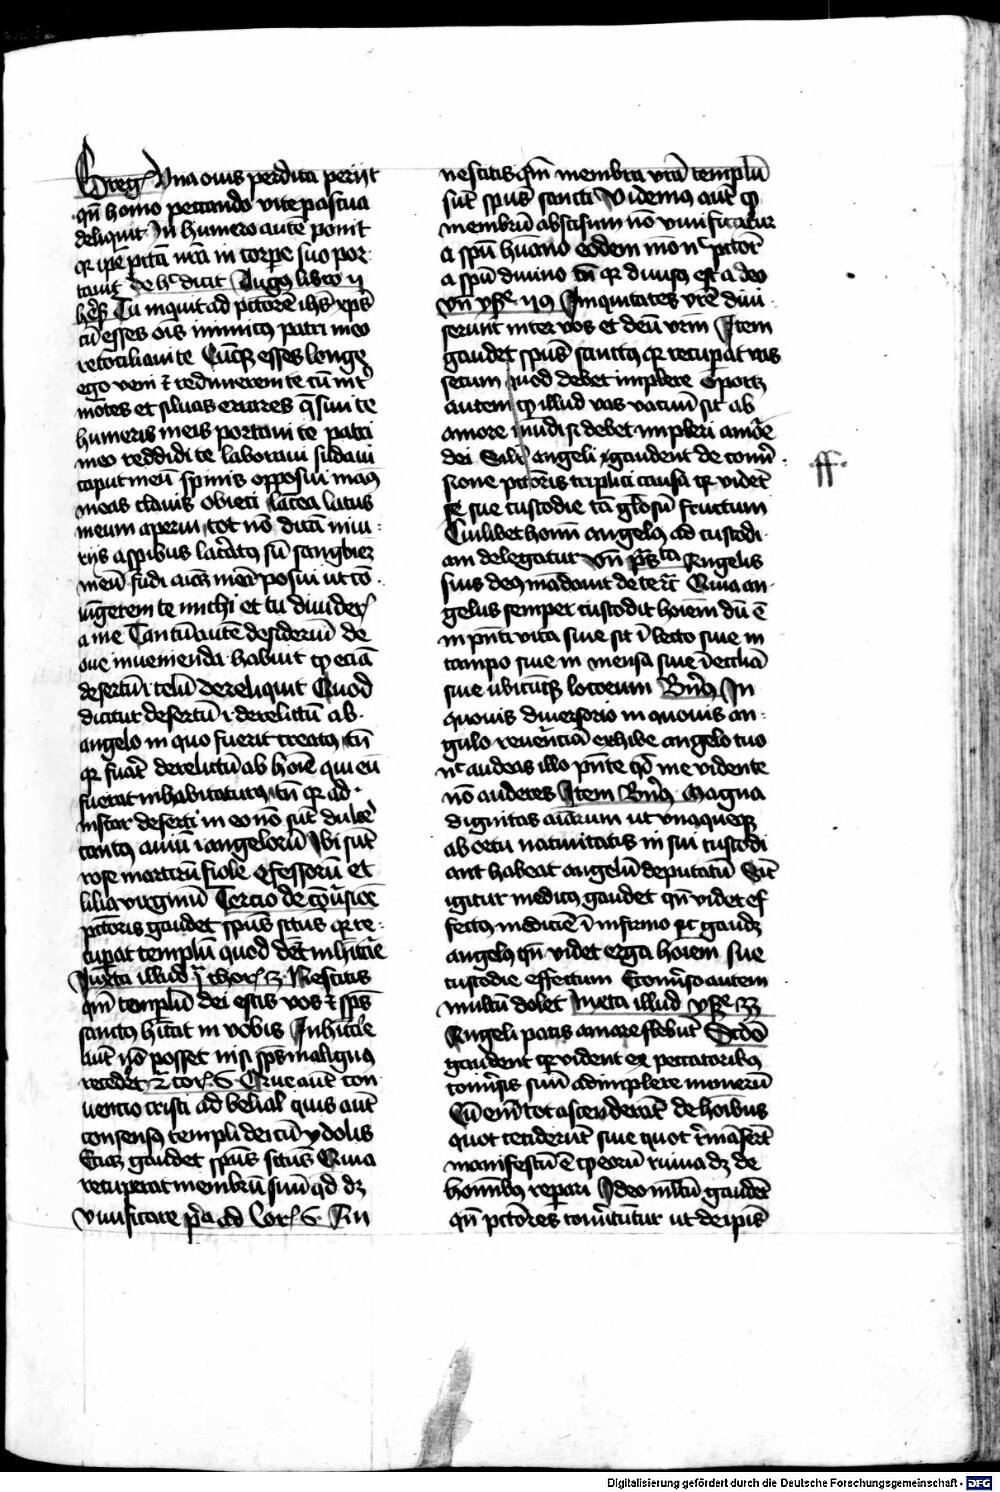 Greg Vna ouis perdita perijt
qn̄ homo peccando vite pascua
deliquit In humero autē ponit
qr ip̄e pctā nr̄a in corpe suo por
tauit de hͨ dicit Augꝰ libro ij
Tu inquit ad pctorē ihs xps
cū esses oīs inimicꝰ patri meo
reconciliaui te Cūqȝ esses longe
ego veni ⁊ redimerem te cū int̄
mōtes et siluas errares q̄siui te
humeris meis portaui te patri
meo reddidi te laboraui sudaui
caput meū spinis opposui manꝰ
meas clauis obieci lācea latus
meum aperui tot nō dicā iniu
rijs asp̄ibus lacāatꝰ sū sangͥnē
meū fudi aīaȝ meā posui ut cō
iūgerem te michi et tu diuider̄
a me Tantū autē desideriū de
oue inuenienda habuit qͥ eciā
desertū .i. celū dereliquit Quod
dicitur desertū .i. derelictū ab
angelo in quo fuerit creatꝰ tū
qr fuāt derelictū ab hoīe qui eū
fuerat inhabitaturꝰ tū qr ad
instar deserti in eo nō sūt dulc̄
cantꝰ auiū .i. angelorū Ibi sūt
rose martirū fiole ꝯfessorū et
lilia virginū Tercio de cōūsiōe
pctoris gaudet spūs sctūs qr re
cuperat templū quod dēt inhītāe
Juxta illud j chor 3 Nescitis
qm̄ templū dei estis vos ⁊ sp̄s
sanctꝰ hītat in vobis Inhītāe
aut nō posset nisi sps malignꝰ
recedēt 2 cor 6 Que aut con
uencio cristi ad belial quis aut
consensꝰ templi dei cū ydolis
Eciā gaudet spūs sctūs Quia
recuperat membrū suū qd dȝ
viuificare pͣa ad Cor 6 An
nescitis qm̄ membra vr̄a templū
sūt spūs sancti Videmꝰ aut qͥ
membrū abscisum nō viuificatur
a spū hūano eodem mō nͨ pctor̄
a spū diuino tū qr diuisꝰ est a deo
vn̄ ysͤ 59 Iniquitates vr̄e diui
serunt inter vos et deū vr̄m Item
gaudet spūs sanctus qr recupat vas
secum quod debet implere Oportȝ
autem qͥ illud vas vacuū sit ab
amore mūdi si debet impleri amōe
dei Silīr angeli gaudent de conūͤ
sione pctoris triplici causa qr vidēt
se sue custodie tā glōsū fructum
Cuilibet homī angelꝰ ad custodi
am delegatur vn̄ psͣta Angelis
suis deus mādauit de te ⁊c̄ Quia an
gelus semper custodit hoīem dū ē
in pn̄ti vita siue sit ī lecto siue in
campo siue in mensa siue ī eccl̄ia
siue ubicūqȝ locorum Bn̄ꝰ In
quouis diuersorio in quouis an
gulo reuerēciā exhibe angelo tuo
nͨ audeas illo pn̄te qd̄ me vidente
nō auderes Item Bn̄ꝰ Magna
dignitas aīarum ut vnaqueqȝ
ab ortu natiuitatis in sui custodi
am habeat angelū deputatū Sic̄
igitur medicꝰ gaudet qn̄ videt ef
fectū medicīe ī infirmo sic gaudȝ
angelꝰ qn̄ videt erga hoīem sue
custodie effectum Econūͤso autem
multū dolet Juxta illud ysͤ 33
Angeli pacis amare flebūt Scdō
gaudent qr vident ex peccatoribꝰ
conūͤsis suū adimplere numerū
Cū em̄ tot ascenderāt de hoībus
quot ceciderūt siue quot r̄māserūt
manifestū ē qͥ eorū ruina dȝ de
homībꝰ repari Ideo mͥltū gaudēt
qn̄ pctores conūͤtūtur ut de ip̄is
ff
Digitalisierung gefördert durch die Deutsche Forschungsgemeinschaft - DFG